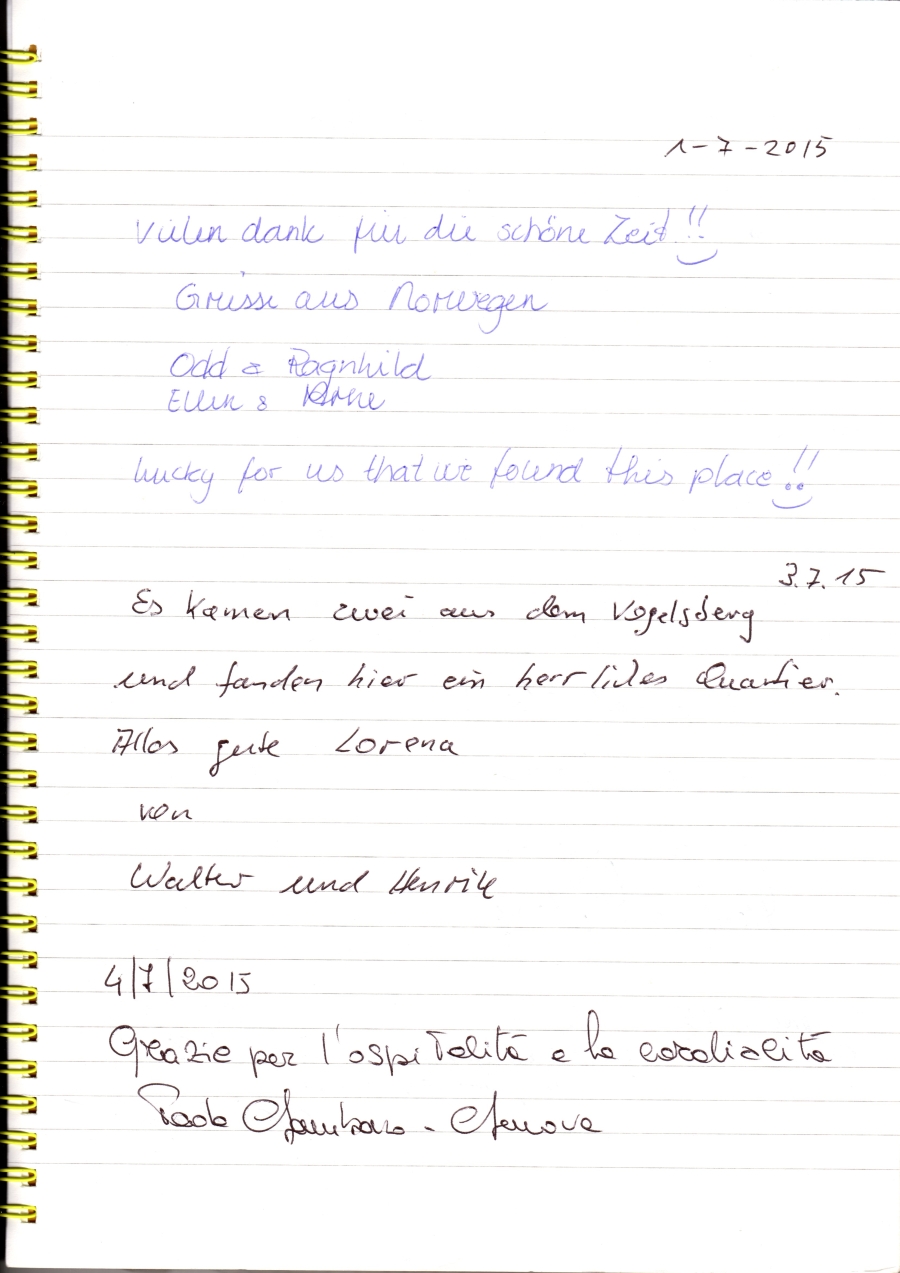 1-7-2015
Vielen dank für die schöne Zeit!!
Grüsse aus Norwegen
Odd & Ragnhild
Ellen & Arne
Lucky for us that we found this place!!
3.7.15
Es kamen zwei aus dem Vogelsberg
und fanden hier ein herrliches Quartier.
Alles gute Lorena
von
Walter und Henrike
4/7/2015
Grazie per l'ospitalità e la cordialità
Paolo - Genova